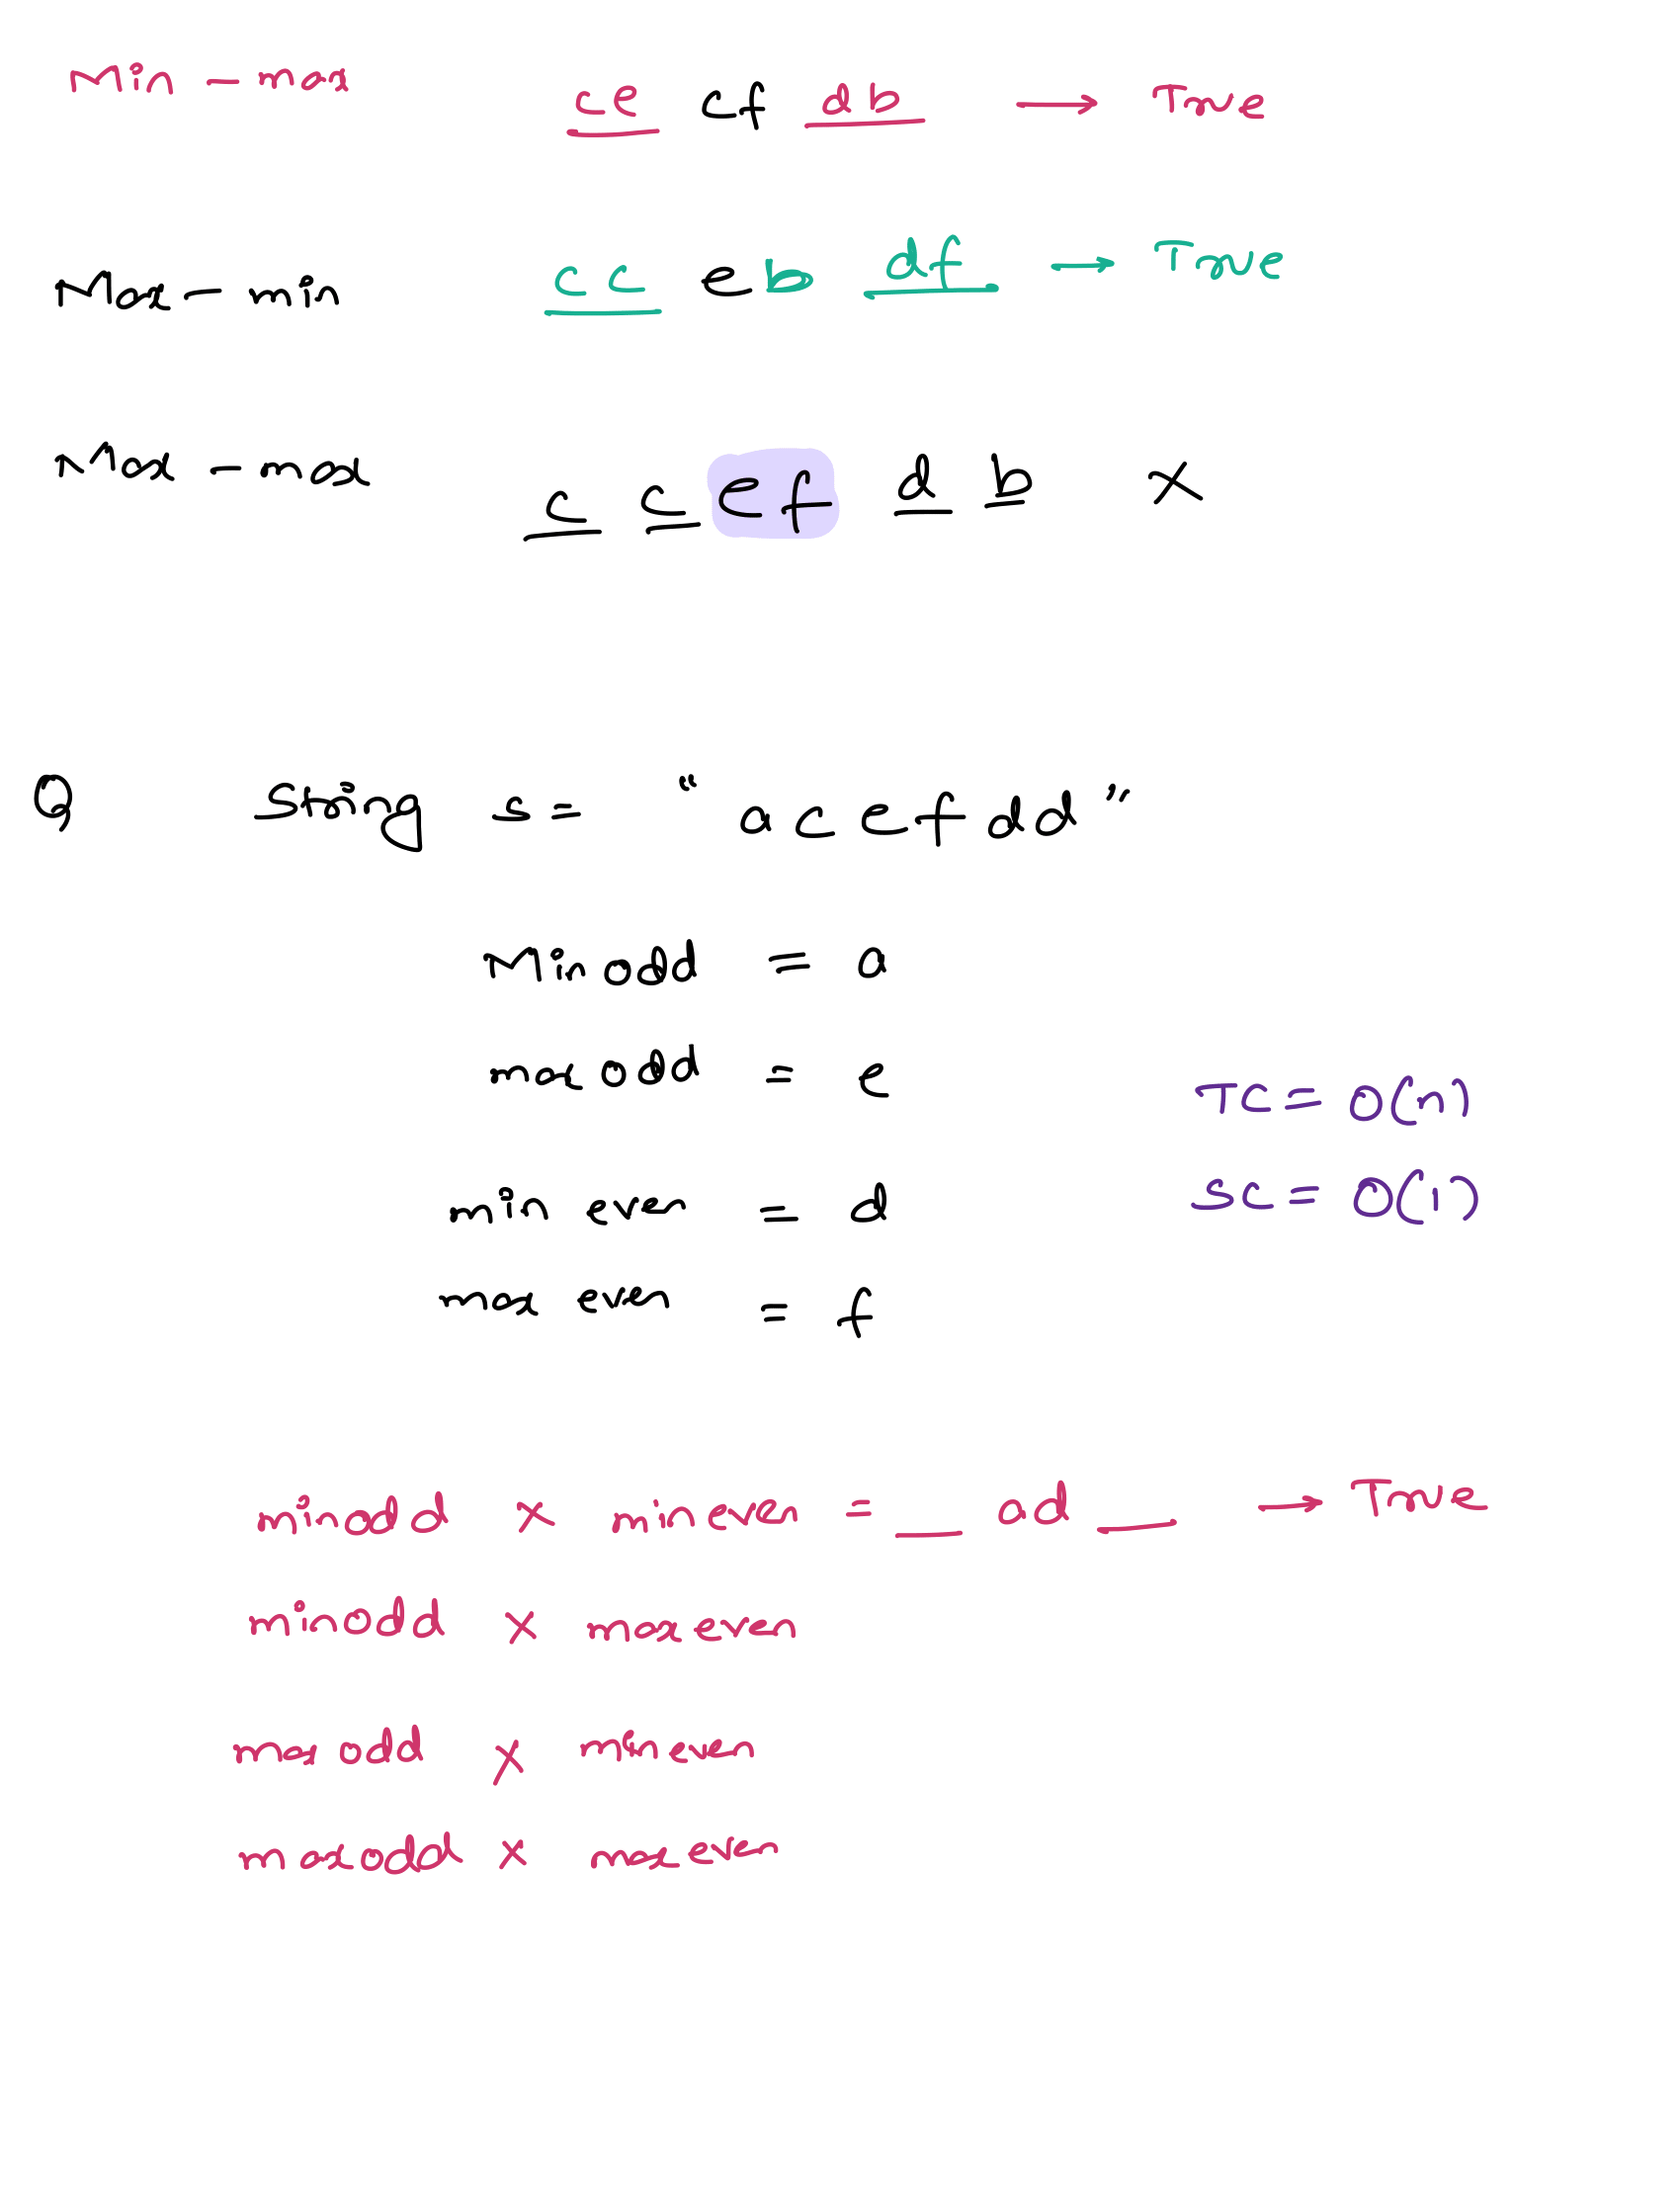 Min - max ce cf db → True
Max - min cc eb df → True
Max - max c c ef d b ×
Q String s = "acefdd"
Min odd = a
max odd = e
TC = O(n)
min even = d
SC = O(1)
max even = f
minodd × mineven = __ ad __ → True
minodd × maxeven
maxodd × mineven
maxodd × maxeven